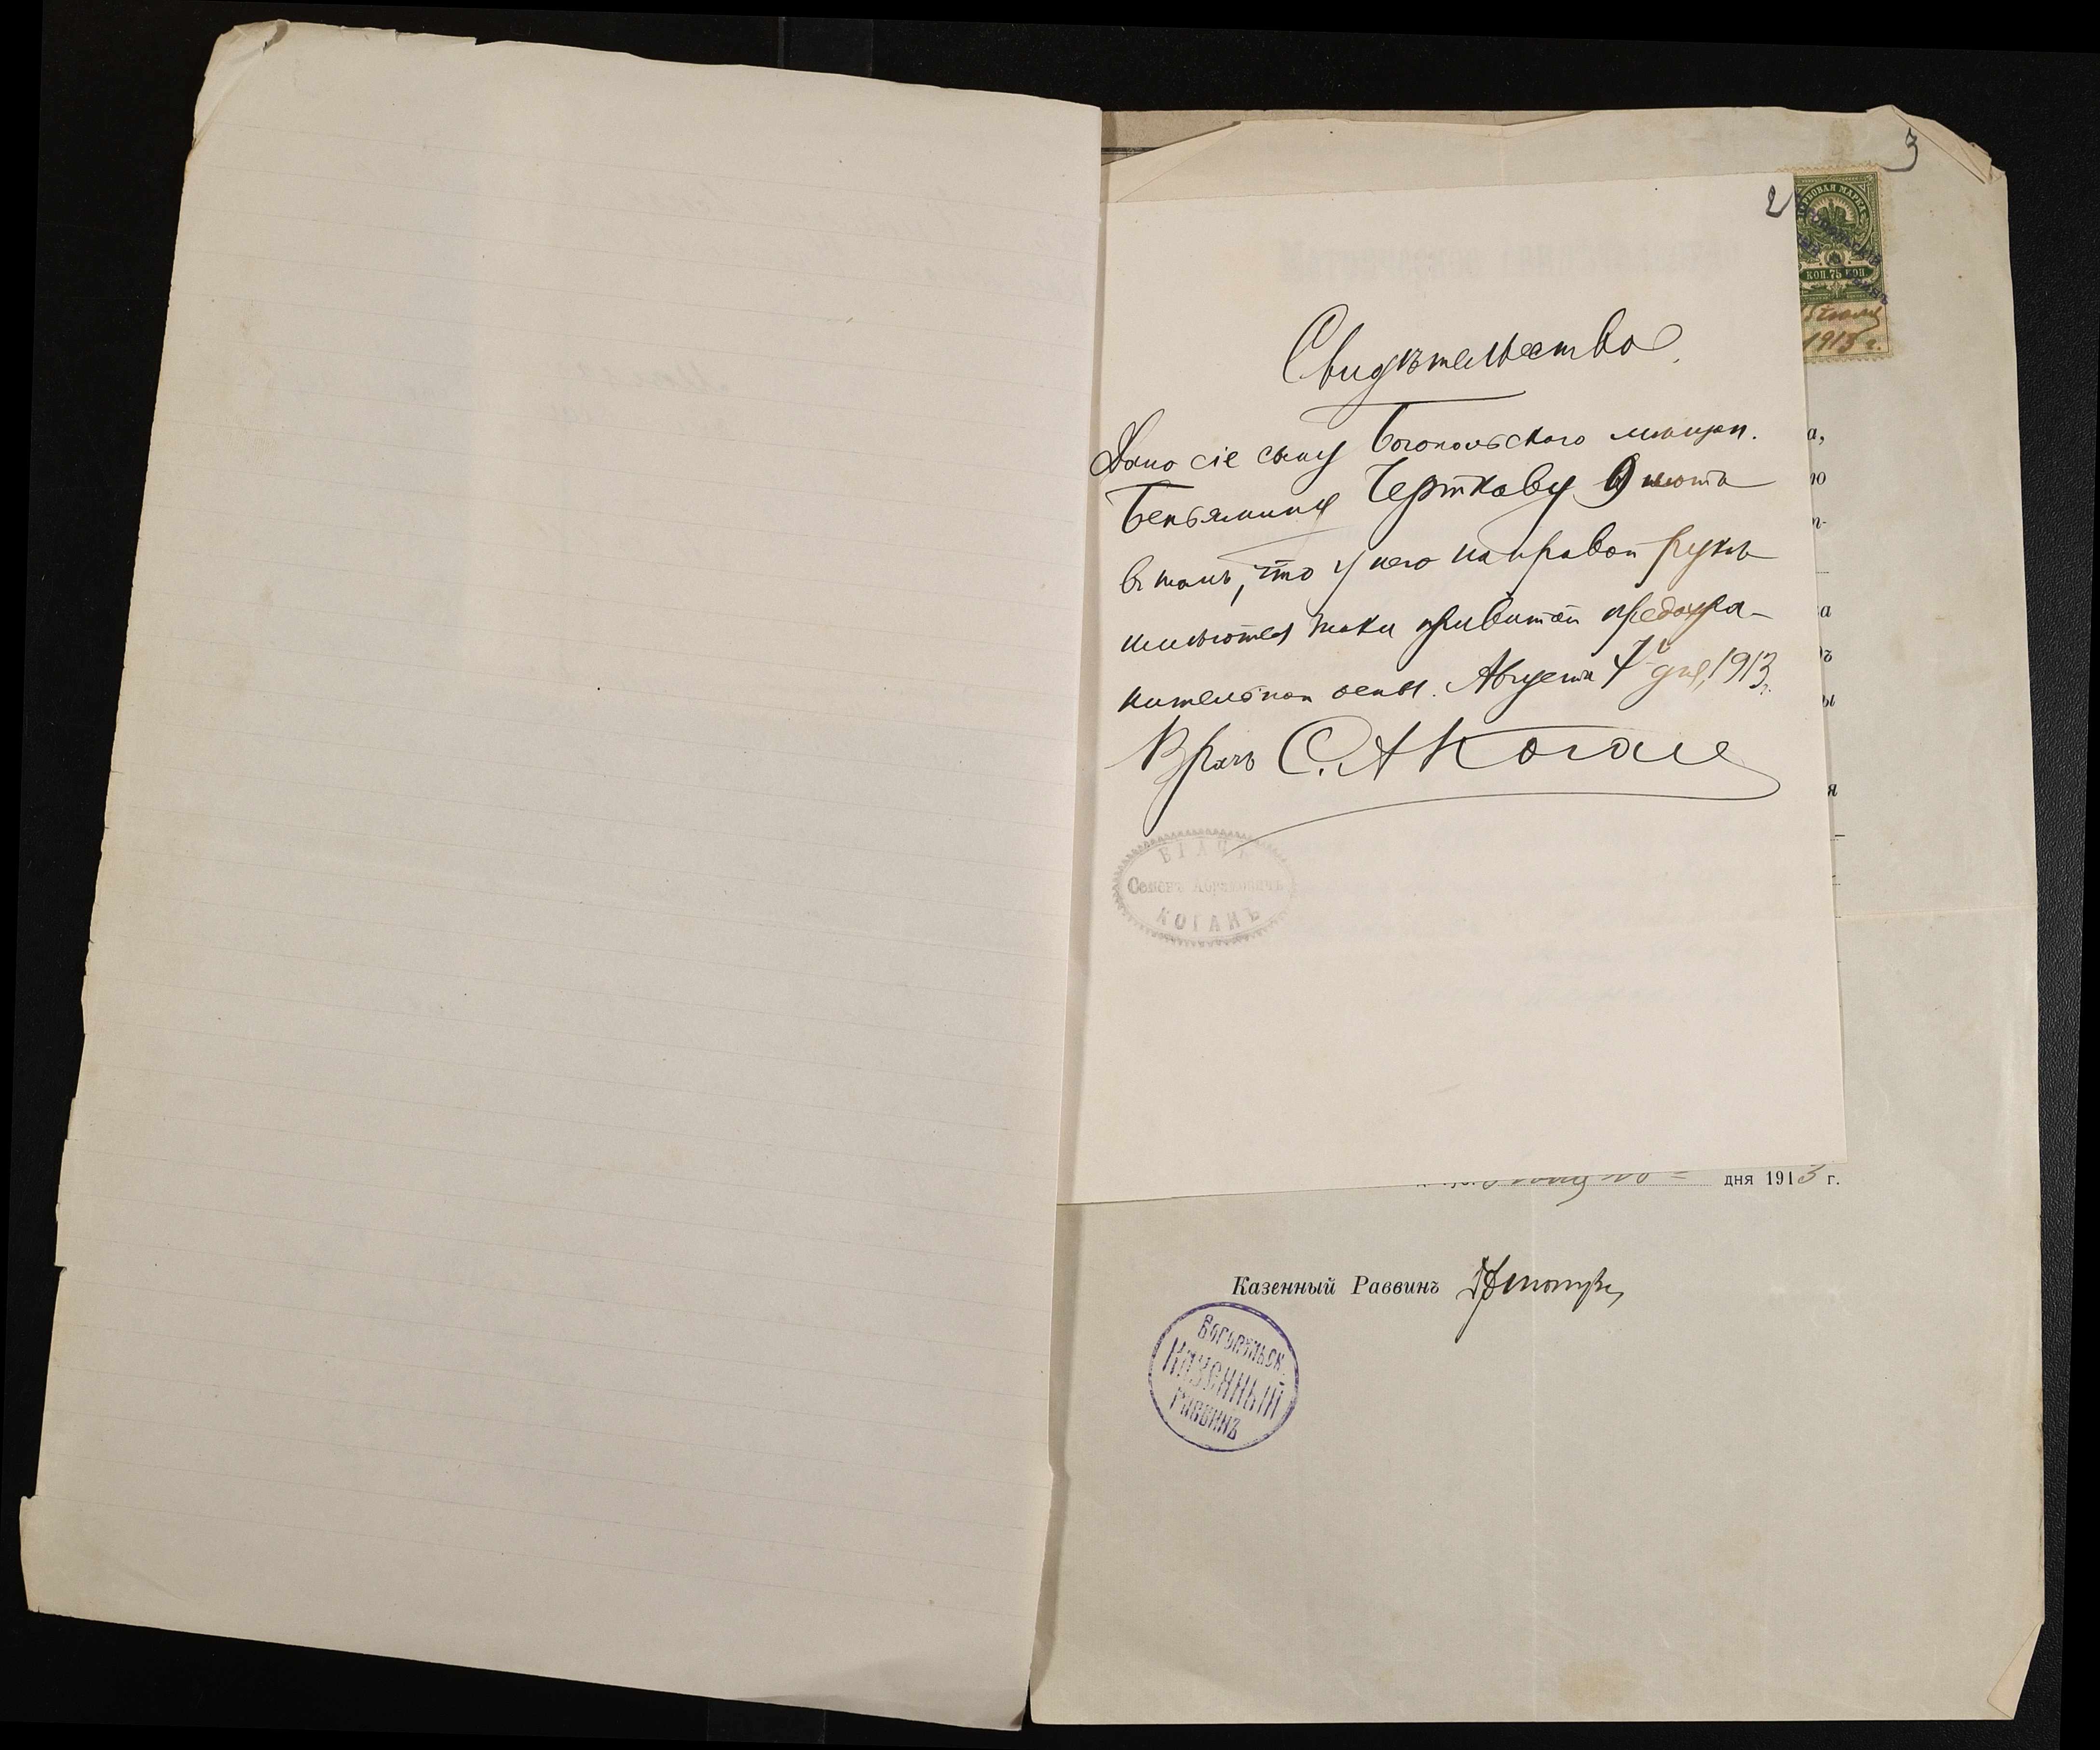 3
2
ГЕРБОВАЯ МАРКА
КОП. 75 КОП.
1913 г.
Свидѣтельство
Дано сіе сыну Богопольскаго мѣщан.
Беньямину Черткову 9 лѣтъ
въ томъ, что у него на правой рукѣ
имѣются знаки привитой предохра-
нительной оспы. Августа 7 дня, 1913 г.
Врачъ С. А Коганъ
ВРАЧЪ
Семенъ Абрамовичъ
КОГАНЪ
а,
а
ы
я
дня 1913 г.
Казенный Раввинъ
БОГОПОЛЬСК.
КАЗЕННЫЙ
РАВВИНЪ